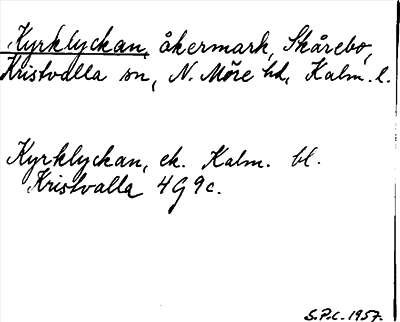 Kyrklyckan, åkermark, Skårebo,
Kristvalla sn, N. Möre hd, Kalm. l.
Kyrklyckan, ek. Kalm. bl.
Kristvalla 4G 9c.
S.P.C. 1957.